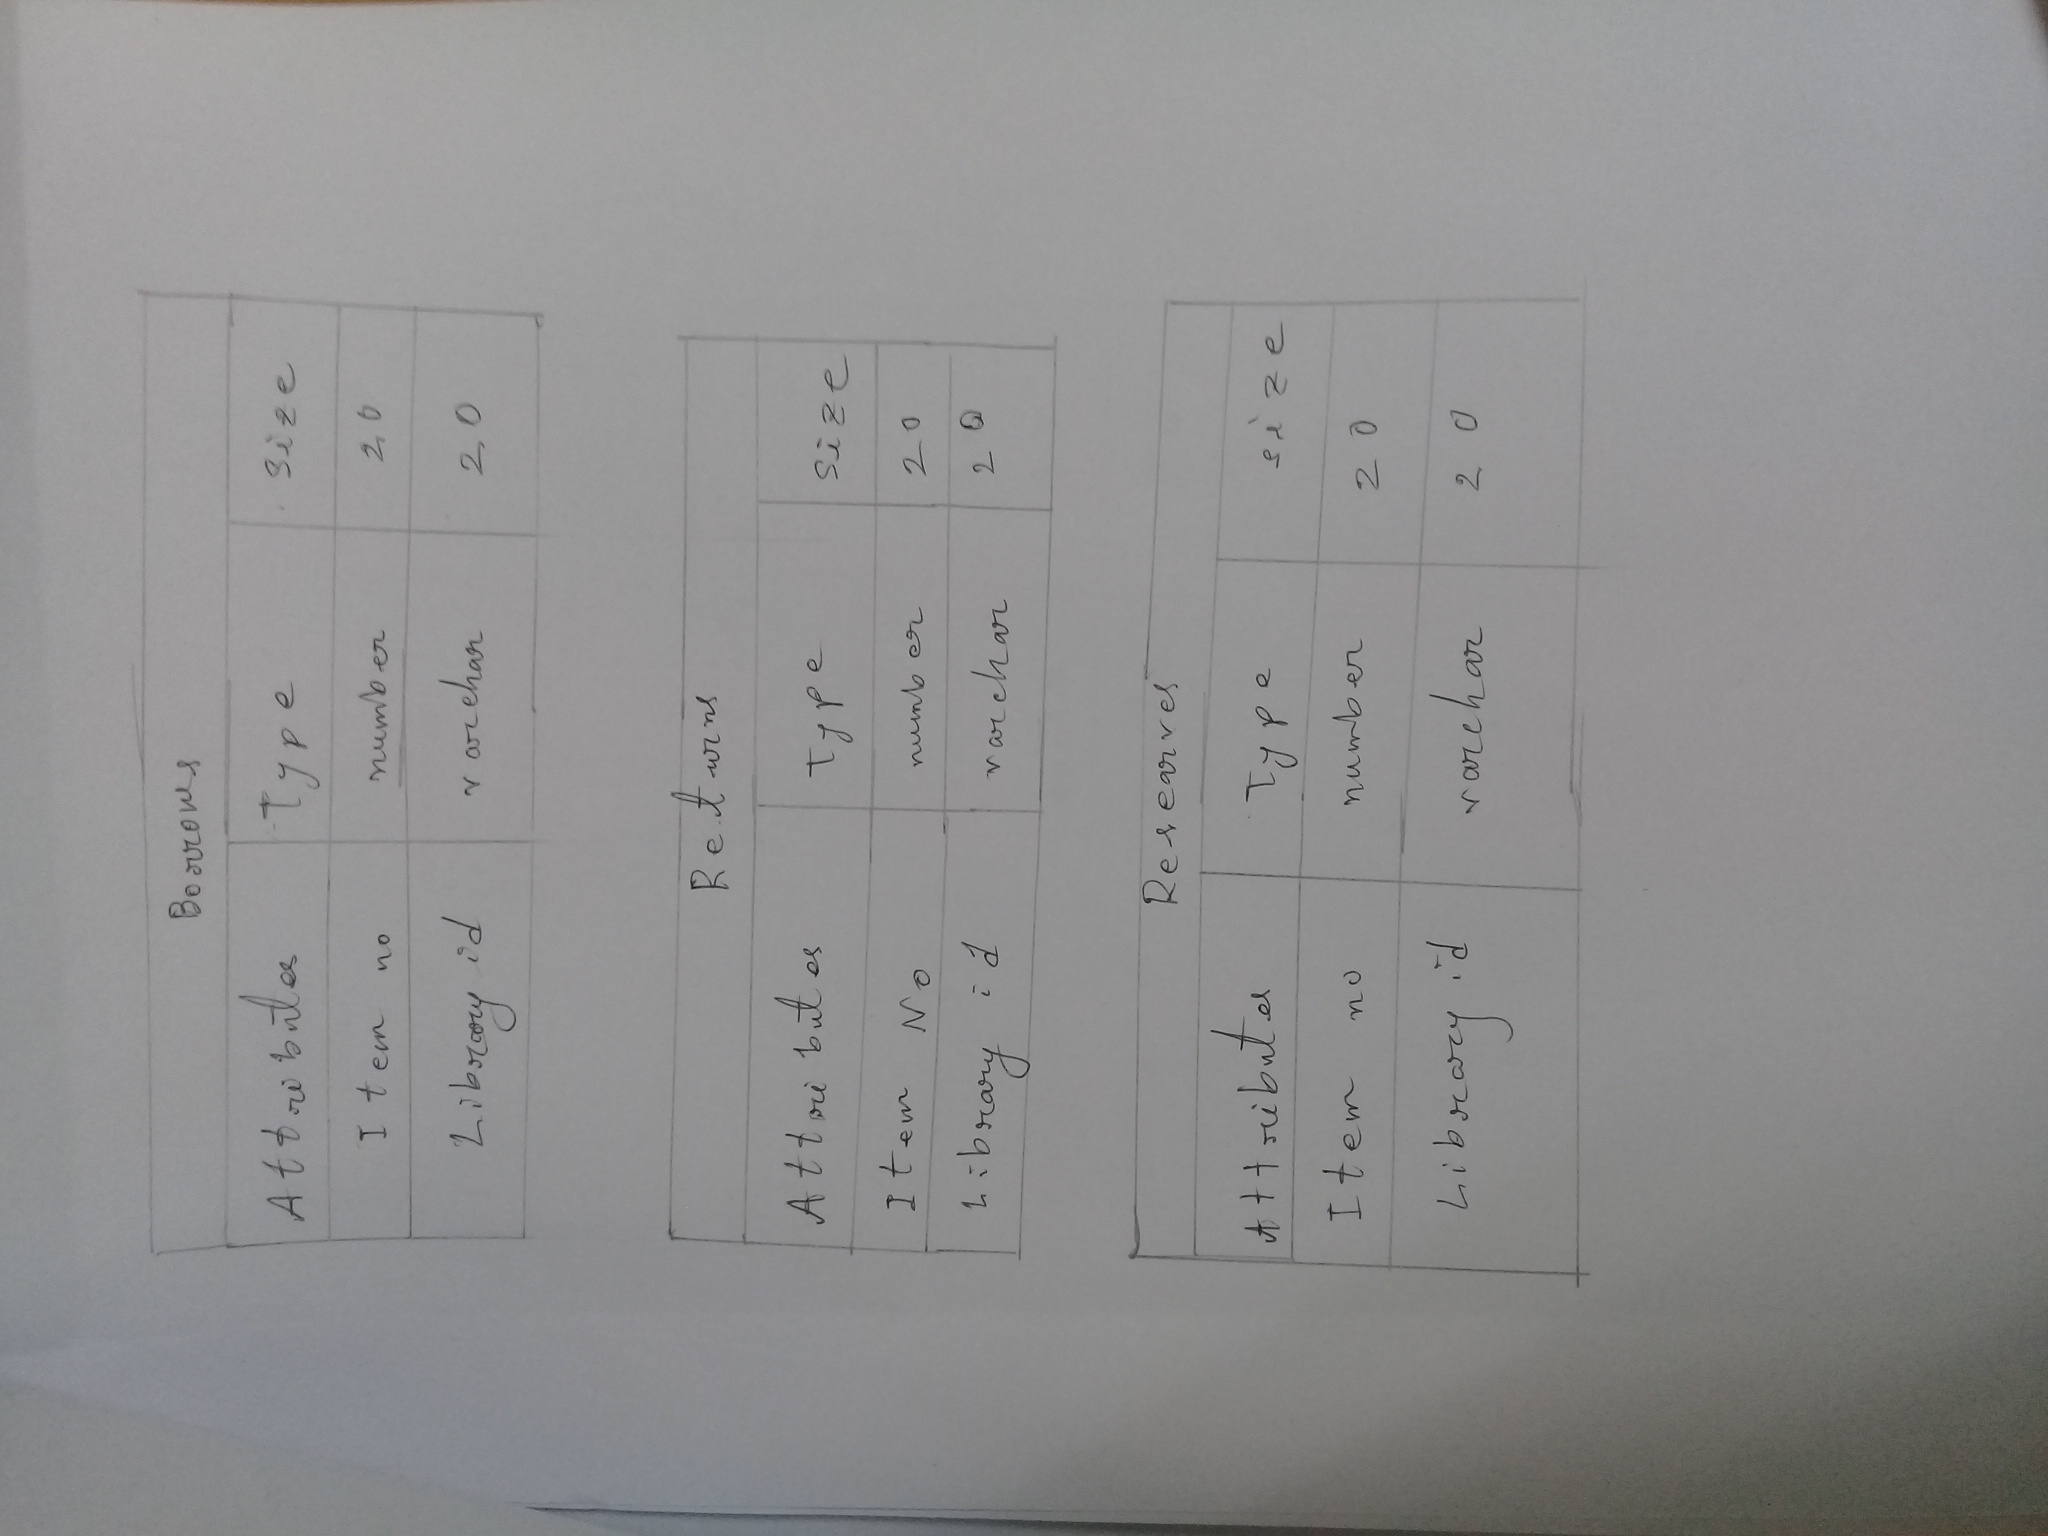 Borrows
Attributes Type Size
Item no number 20
Library id varchar 20
Returns
Attributes Type Size
Item No number 20
Library id varchar 20
Researves
Attributes Type size
Item no number 20
Library id varchar 20